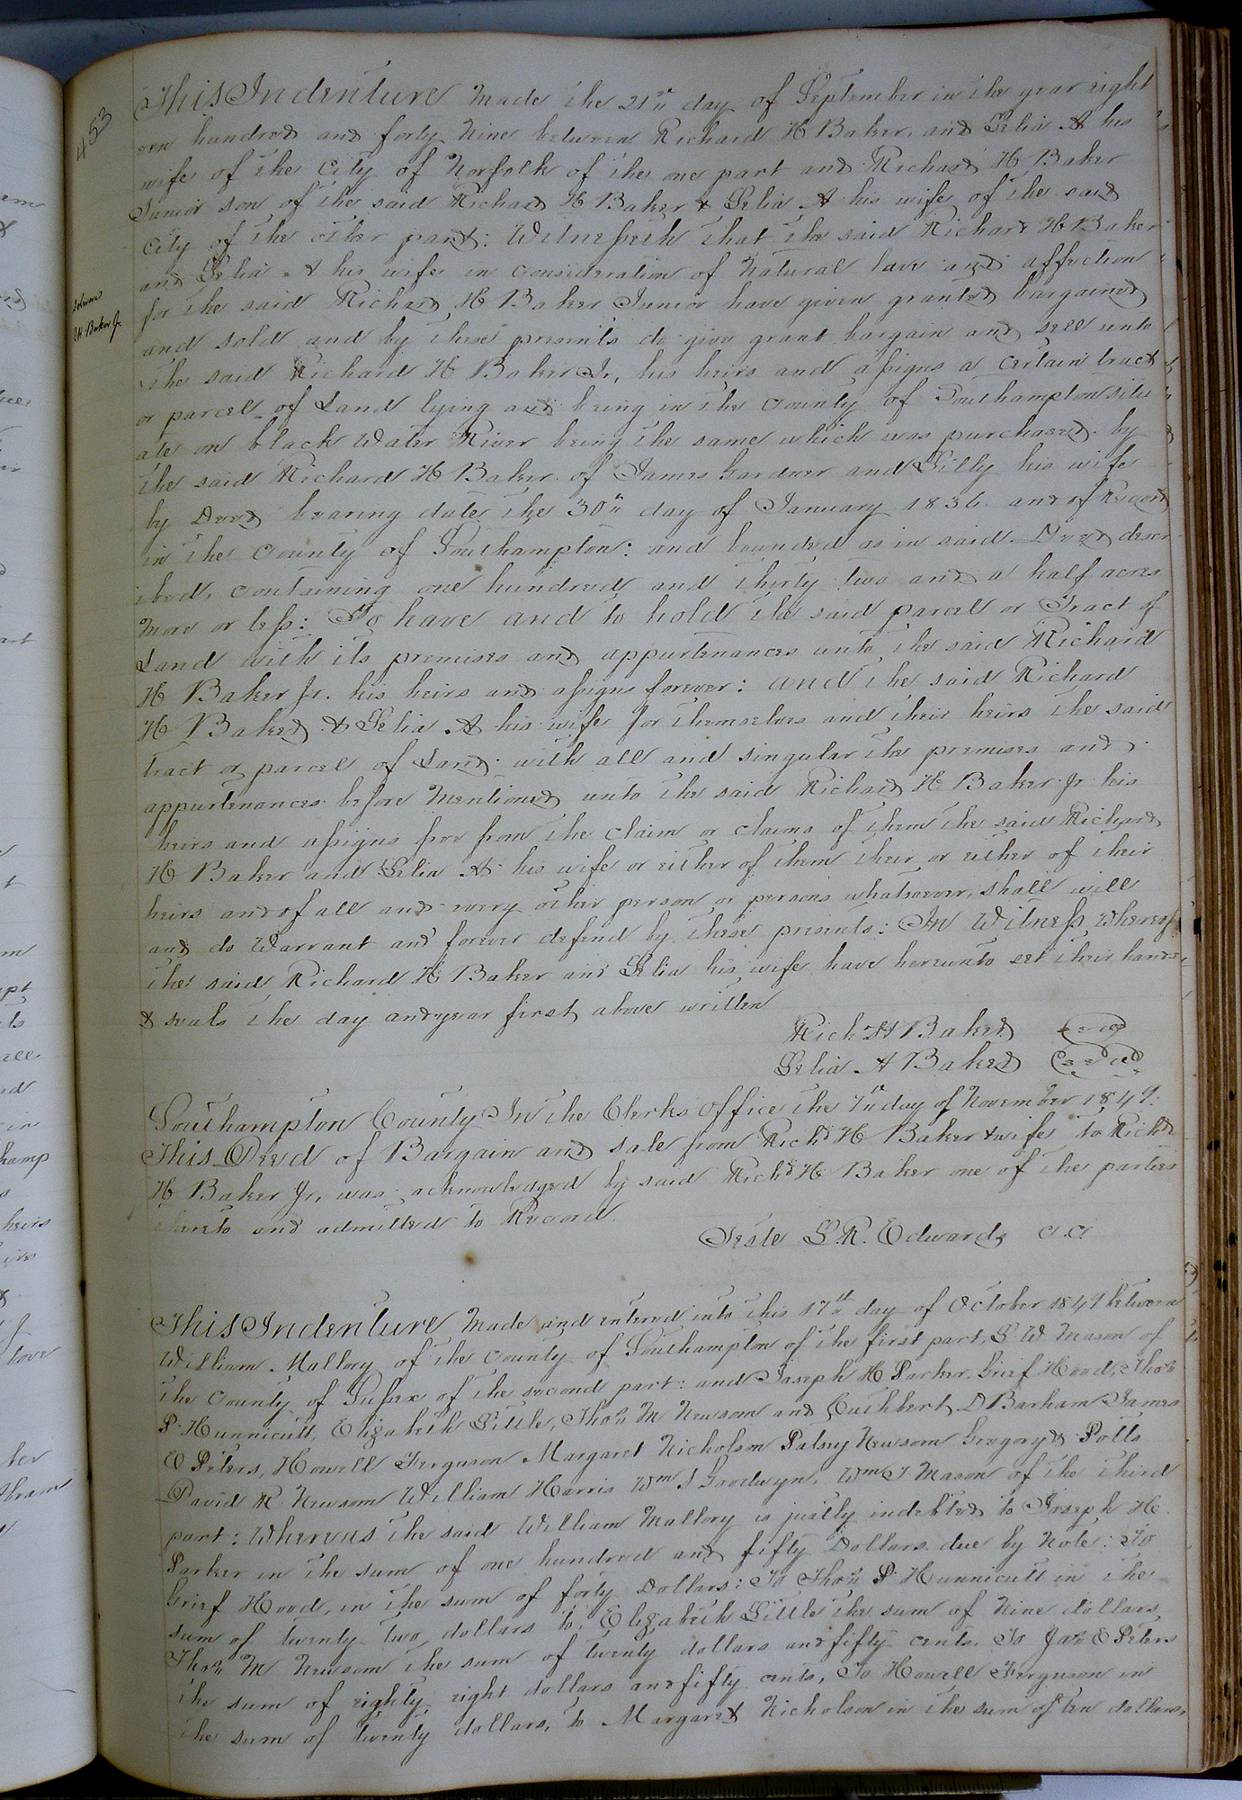 453
This Indenture Made the 21st day of September in the year eight
een hundred and forty Nine between Richard H Baker, and Lelia A his
wife of the City of Norfolk of the one part and Richard H Baker
Junior son of the said Richard H Baker & Lelia A his wife of the said
City of the other part: Witnesseth that the said Richard H Baker
and Lelia A his wife in consideration of Natural love and affection
for the said Richard H Baker Junior have given granted bargained
H Baker Jr
and sold and by these presents do give grant bargain and sell unto
the said Richard H Baker Jr, his heirs and assigns a certain tract
or parcel of Land lying and being in the County of Southampton situ
ate on black Water River being the same which was purchased by
the said Richard H Baker of James Gardner and his wife
by Deed bearing date the 30th day of January 1836 and of Record
in the County of Southampton: and bounded as in said Deed descr
ibed, containing one hundred and thirty two and a half acres
more or less: To have and to hold the said parcel or Tract of
Land with its premises and appurtenances unto the said Richard
H Baker Jr. his heirs and assigns forever: and the said Richard
H Baker & Lelia A his wife for themselves and their heirs the said
tract or parcel of Land with all and singular the premises and
appurtenances before Mentioned unto the said Richard H Baker Jr his
heirs and assigns free from the claim or claims of them the said Richard
H Baker and Lelia A his wife or either of them their or either of their
heirs and of all and every other person or persons whatsoever, shall will
and do Warrant and forever defend by these presents: In Witness Whereof
the said Richard H Baker and Lelia his wife have hereunto set their hands
& seals the day and year first above written
Rich H Baker Seal
Lelia A Baker Seal
Southampton County In the Clerks Office the day of November 1849.
This Deed of Bargain and sale from Richd H Baker & wife to Richd
H Baker Jr, was acknowledged by said Richd H Baker one of the parties
thereto and admitted to Record.
Teste L. R. Edwards C.C
This Indenture Made and entered into this 17th day of October 1849 between
William Mallory of the County of Southampton of the first part, W Mason of
the County of Sussex of the second part: and Joseph H Parker, Grief Hood, Thos
P. Hunnicutt, Elizabeth Little, Thos M Newsom and Cuthbert D Barham James
E Peters, Howell Ferguson Margaret Nicholson Patsey Newsom Gregory & Potts
David R. Newsom William Harris Wm Goodwyn, Wm Mason of the third
part: Whereas the said William Mallory is justly indebted to Joseph H.
Parker in the sum of one hundred and fifty Dollars due by Note: To
Grief Hood, in the sum of forty Dollars: To Thos P Hunnicutt in the
sum of twenty two dollars to Elizabeth Little the sum of Nine dollars,
Thos M Newsom the sum of twenty dollars and fifty cents, To Jas E Peters
the sum of eighty eight dollars and fifty cents, To Howell Ferguson in
the sum of twenty dollars, to Margaret Nicholson in the sum of ten dollars,